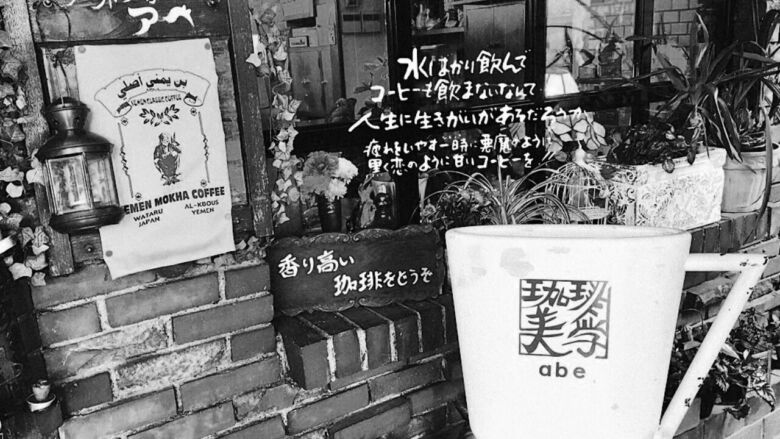 アベ
بن يمني أصلي
YEMEN CLASSIC COFFEE
YEMEN MOKHA COFFEE
WATARU
JAPAN
AL-KBOUS
YEMEN
水ばかり飲んで
コーヒーも飲まないなんて
人生に生きがいがあるだろうか
疲れをいやす一時に悪魔のように
黒く恋のように甘いコーヒーを
香り高い
珈琲をどうぞ
珈琲
美学
abe